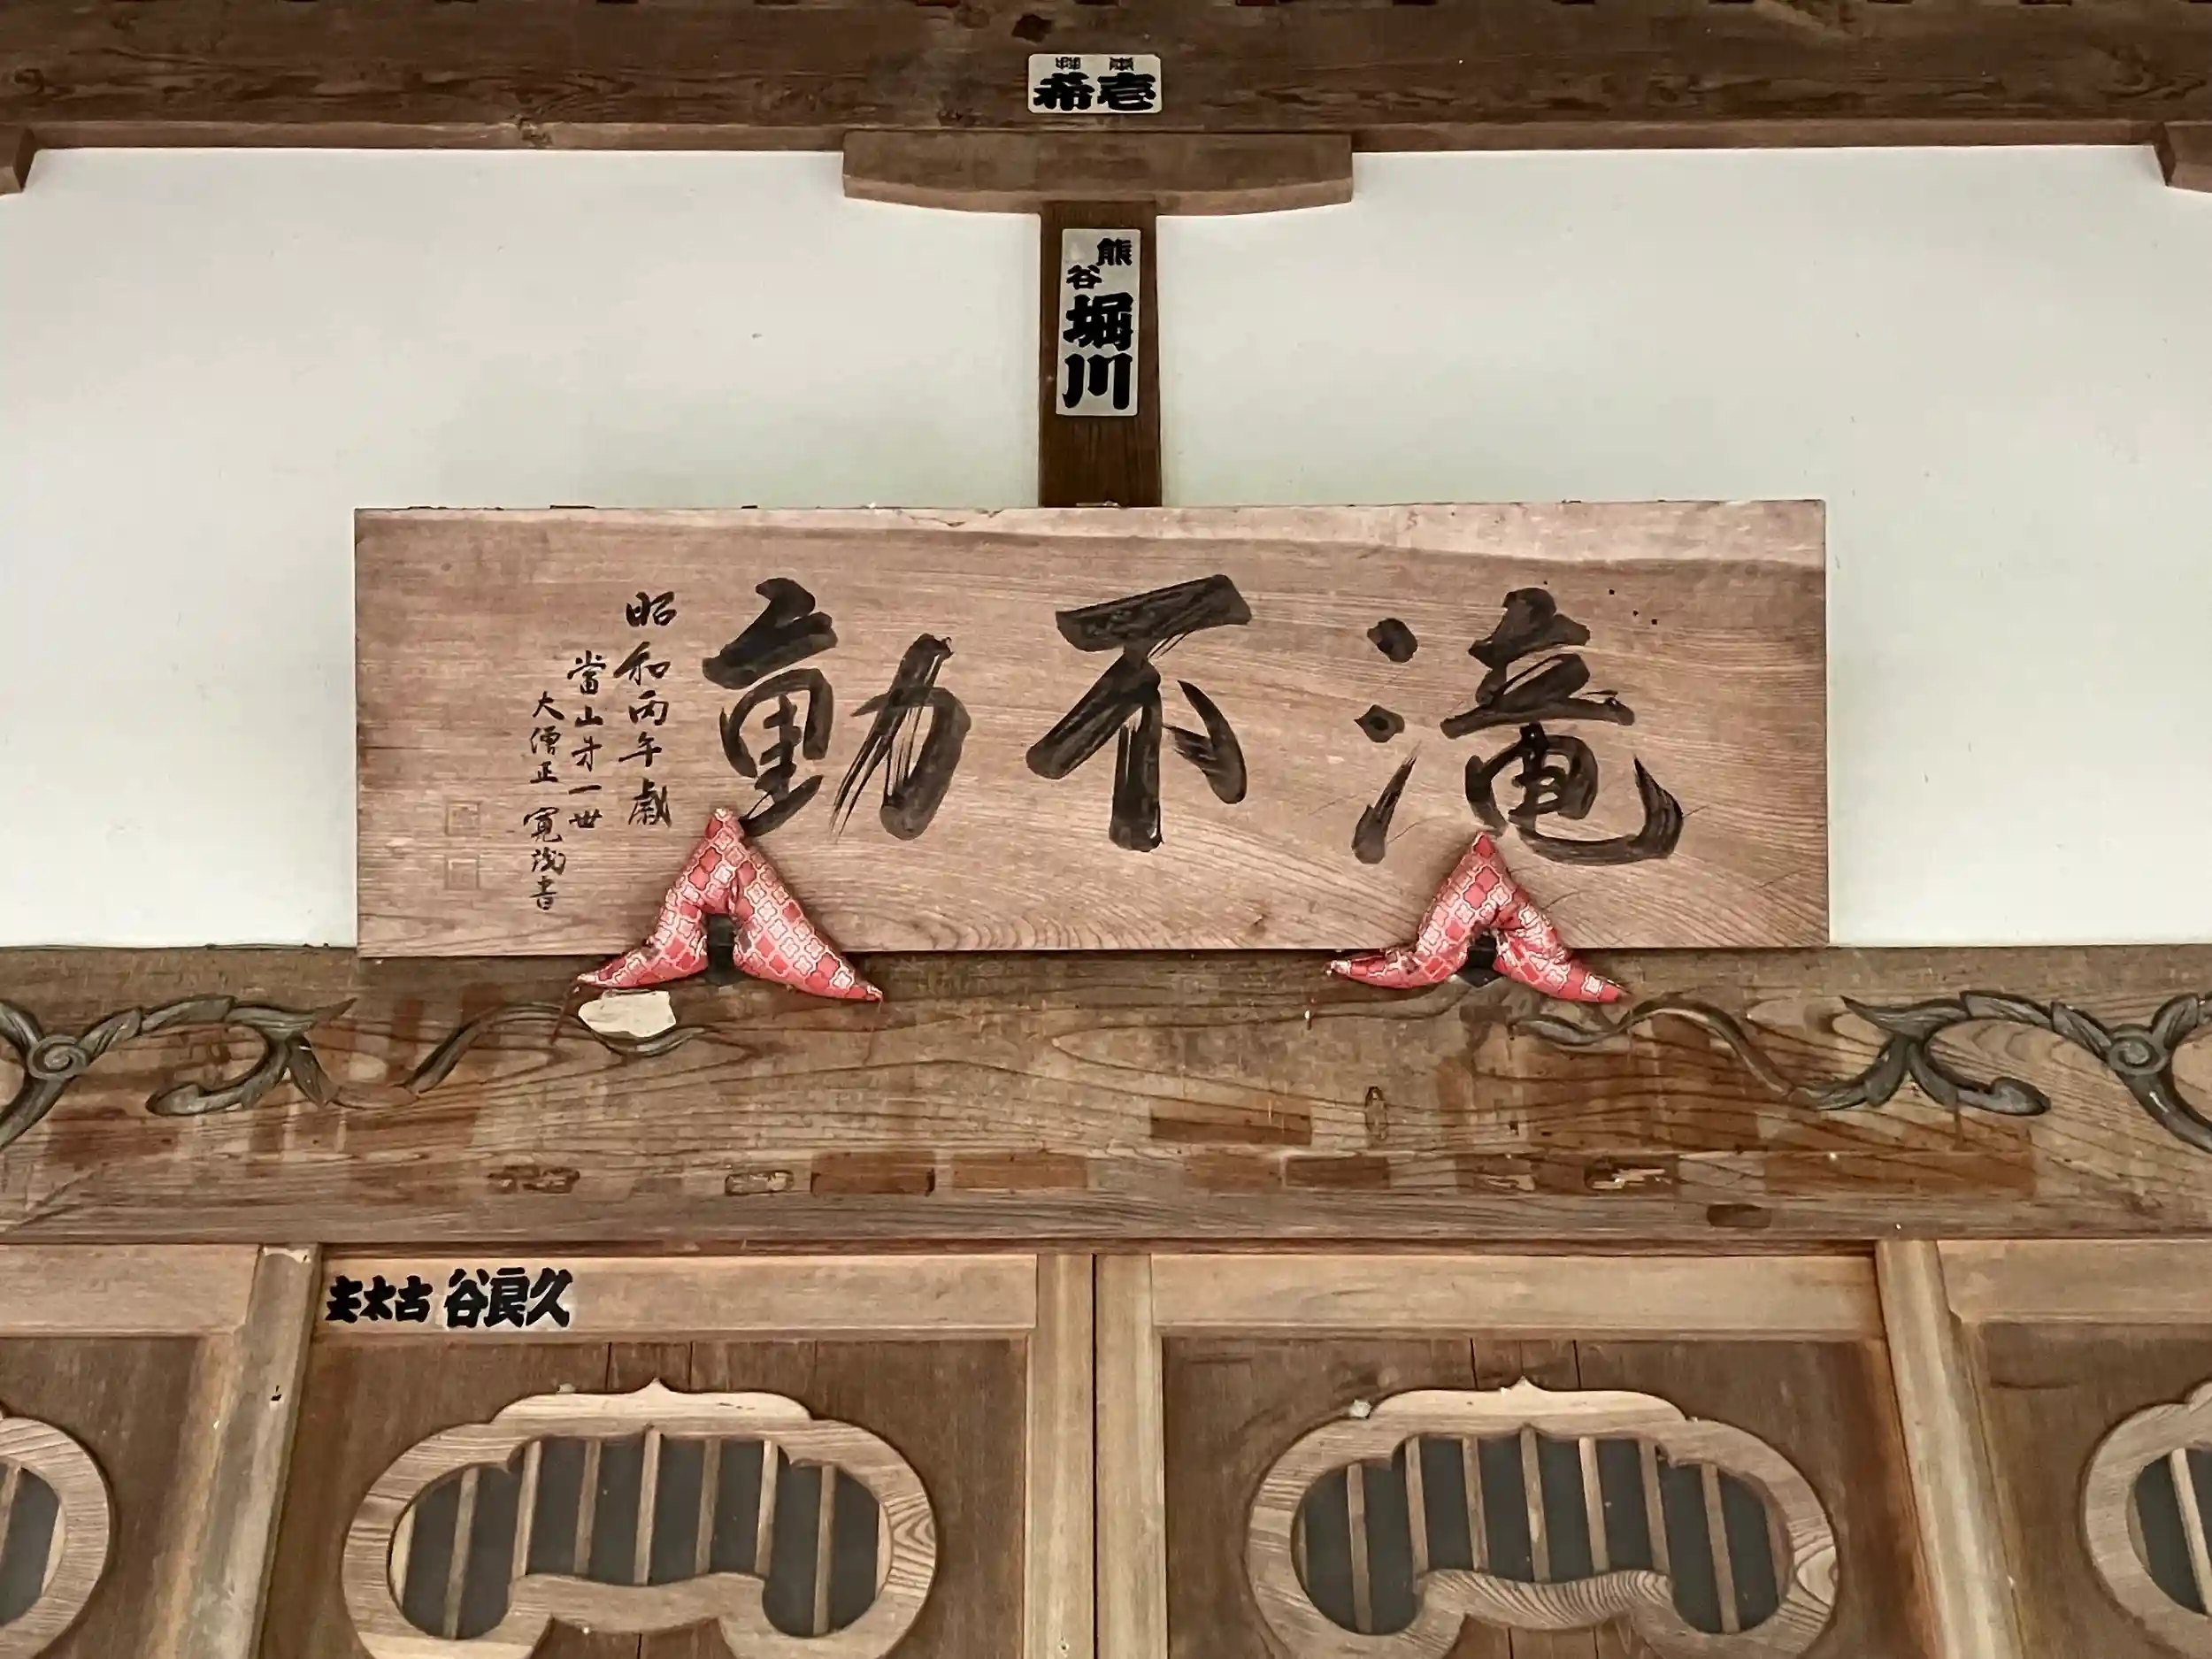 壱希
熊谷
堀川
滝不動
昭和丙午歳
當山廿一世
大僧正
書
久良谷 古太夫